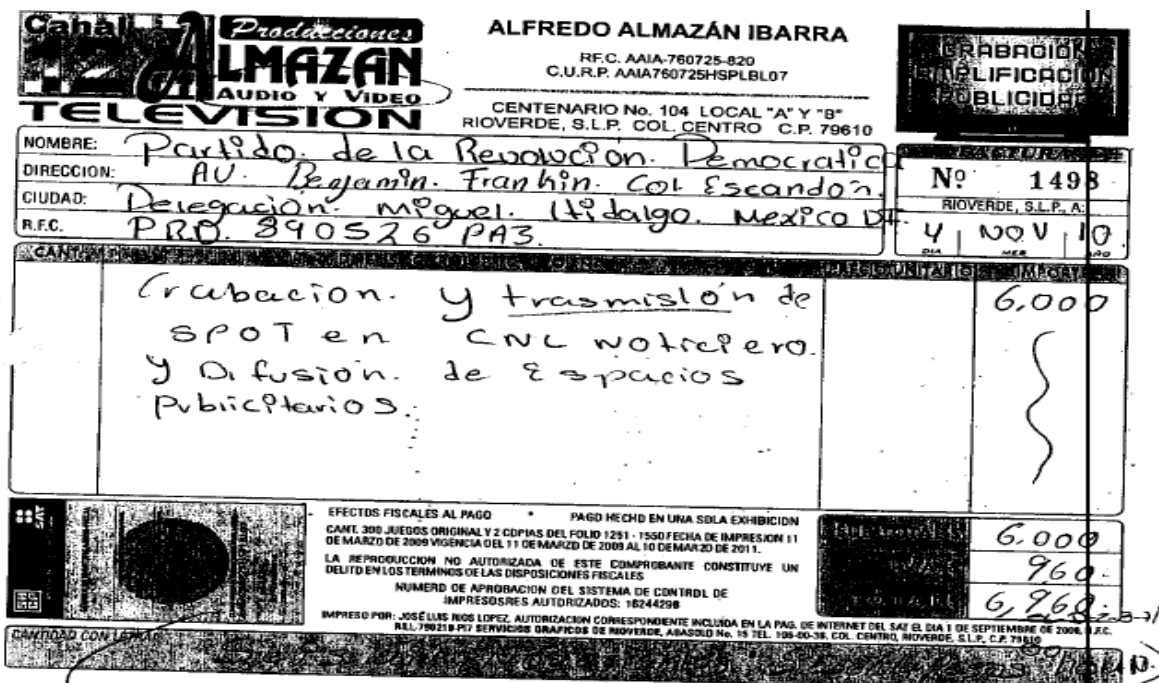 Canal 12 Producciones
ALMAZAN
AUDIO Y VIDEO
TELEVISION
ALFREDO ALMAZÁN IBARRA
RF.C. AAIA-760725-820
C.U.R.P. AAIA760725HSPLBL07
CENTENARIO No. 104 LOCAL "A" Y "B"
RIOVERDE, S.L.P. COL. CENTRO C.P. 79610
GRABACION
AMPLIFICACION
PUBLICIDAD
NOMBRE: Partido. de la Revolución. Democratica
DIRECCION: AV. Benjamin. Franklin. Col Escandon.
CIUDAD: Delegación. Miguel. Hidalgo. Mexico DF.
R.F.C. PRD. 890526 PA3.
FACTURA
Nº 1498
RIOVERDE, S.L.P., A:
4 NOV 10
DIA MES AÑO
CANT. UNITARIO IMPORTE
Grabacion. y trasmisión de 6,000
SPOT en CNL Noticiero.
y Difusión. de Espacios
Publicitarios.
EFECTOS FISCALES AL PAGO • PAGO HECHO EN UNA SOLA EXHIBICION
CANT. 300 JUEGOS ORIGINAL Y 2 COPIAS DEL FOLIO 1251 - 1550 FECHA DE IMPRESION 11
DE MARZO DE 2009 VIGENCIA DEL 11 DE MARZO DE 2009 AL 10 DE MARZO DE 2011.
LA REPRODUCCION NO AUTORIZADA DE ESTE COMPROBANTE CONSTITUYE UN
DELITO EN LOS TERMINOS DE LAS DISPOSICIONES FISCALES
NUMERO DE APROBACION DEL SISTEMA DE CONTROL DE
IMPRESORES AUTORIZADOS: 16244298
6,000
960.
6,960.
IMPRESO POR: JOSÉ LUIS RIOS LOPEZ, AUTORIZACION CORRESPONDENTE INCLUIDA EN LA PAG. DE INTERNET DEL SAT EL DIA 1 DE SEPTIEMBRE DE 2008, R.F.C.
RILL-790218-PI7 SERVICIOS GRAFICOS DE RIOVERDE, ABASOLO No. 15 TEL. 106-00-36, COL. CENTRO, RIOVERDE, S.L.P., C.P. 79610
CANTIDAD CON LETRA
SAT